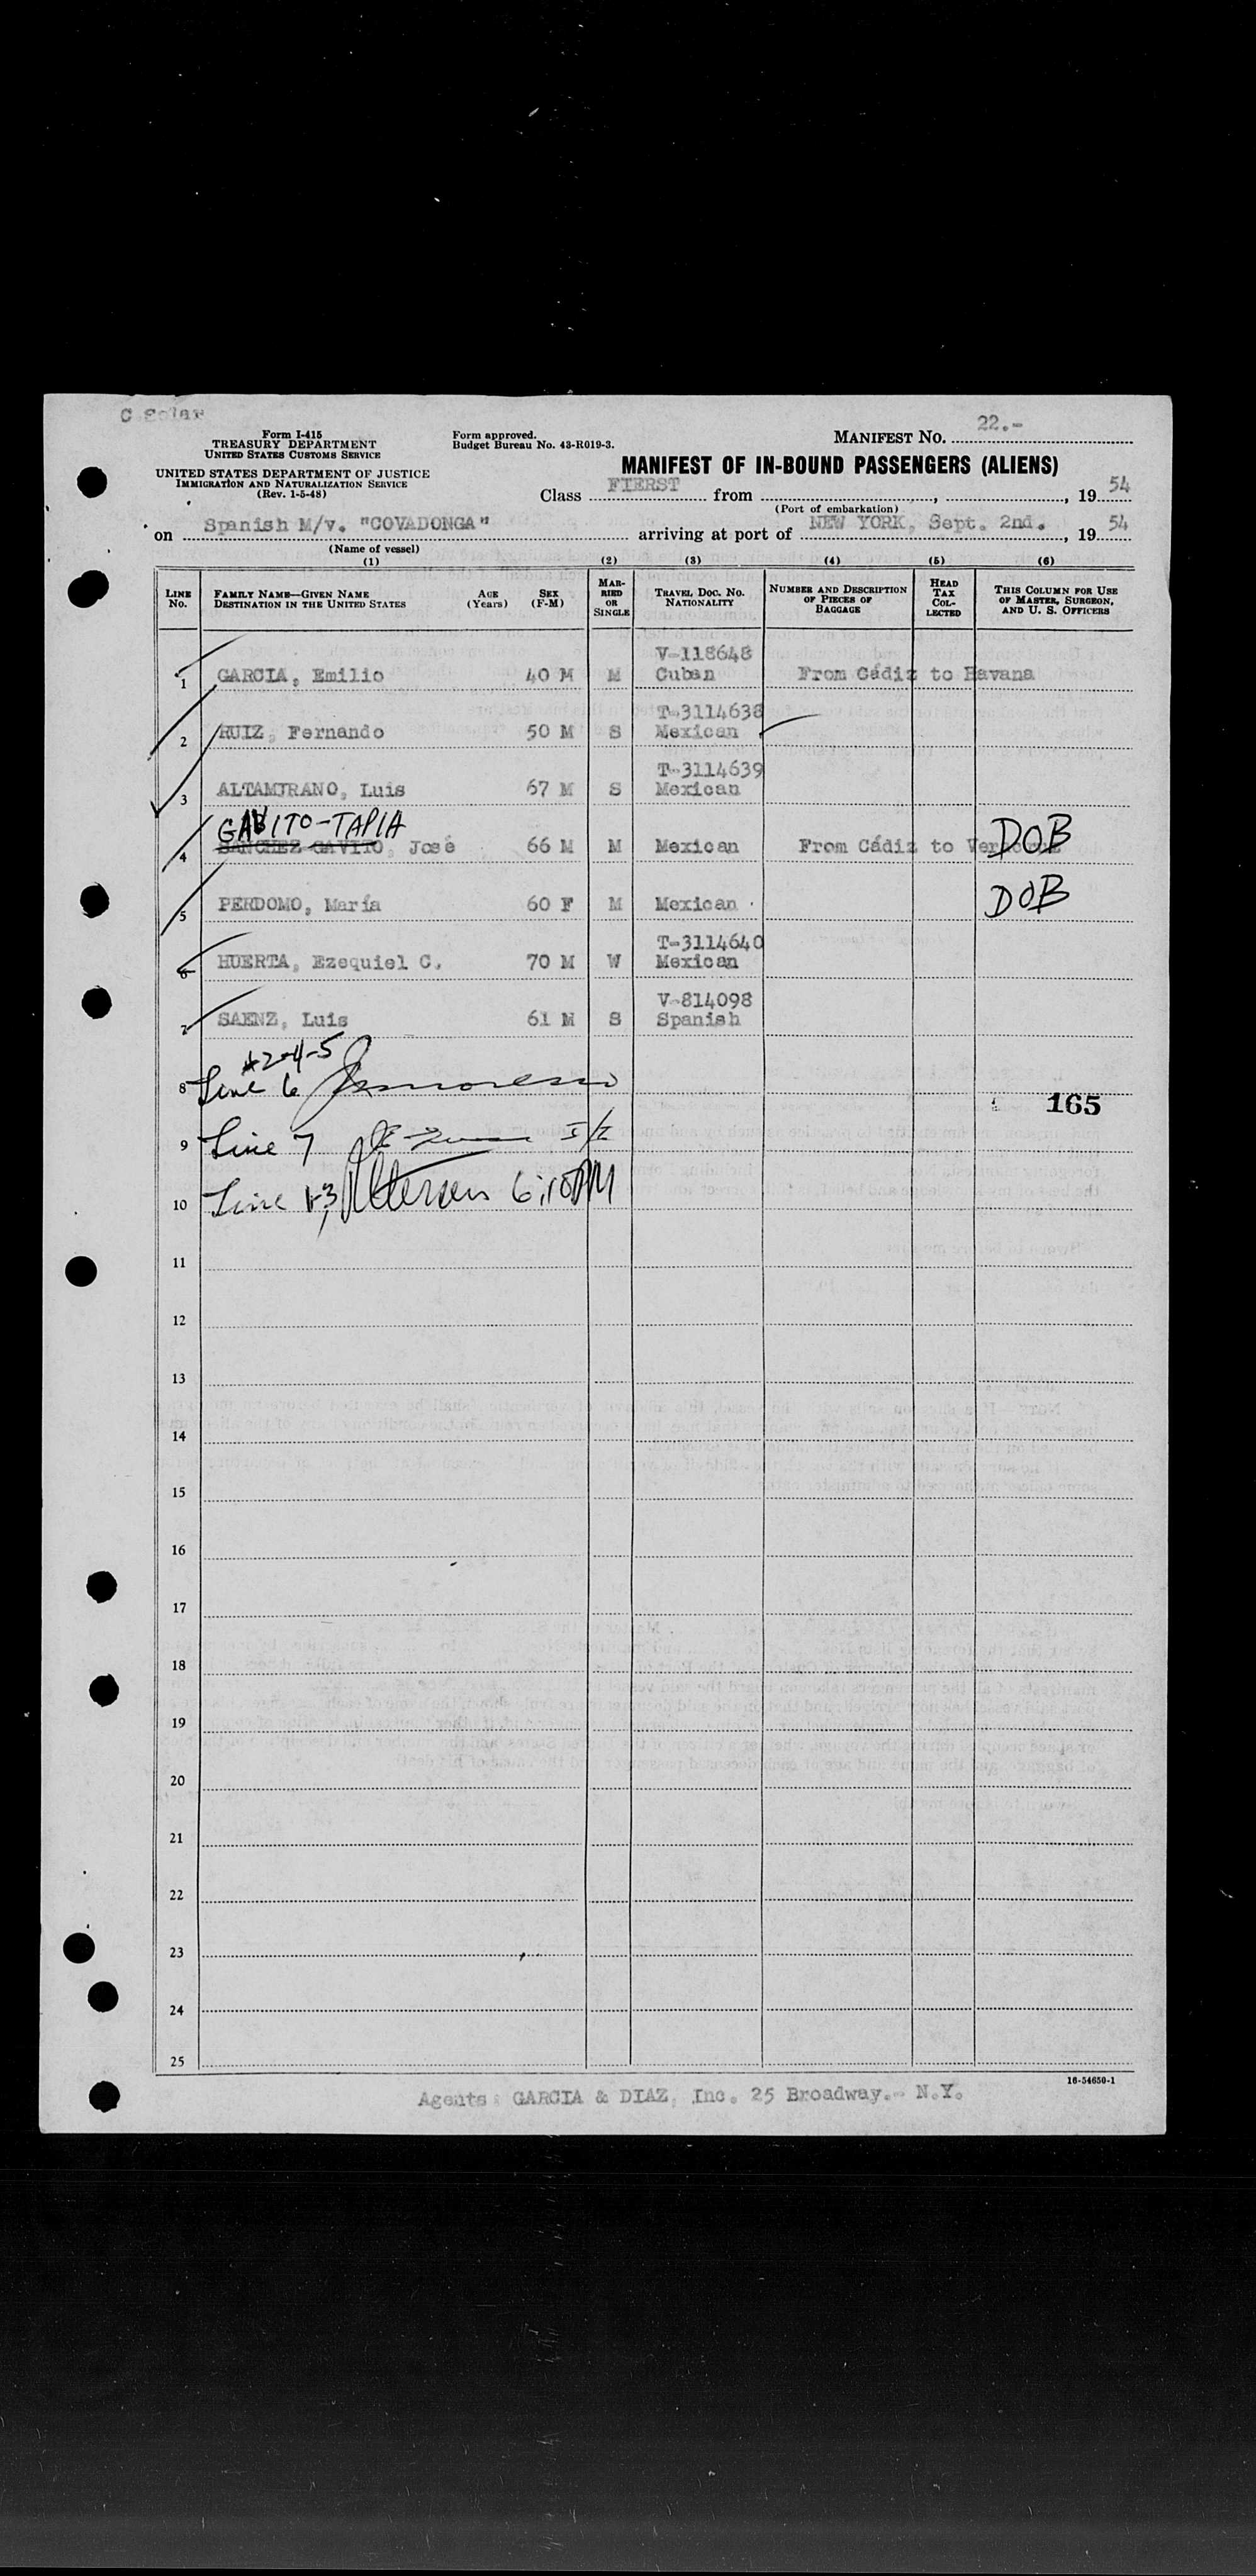 C Solar
Form I-415
TREASURY DEPARTMENT
UNITED STATES CUSTOMS SERVICE
UNITED STATES DEPARTMENT OF JUSTICE
IMMIGRATION AND NATURALIZATION SERVICE
(Rev. 1-5-48)
Form approved.
Budget Bureau No. 43-R019-3.
MANIFEST NO. 22.-
MANIFEST OF IN-BOUND PASSENGERS (ALIENS)
Class FIERST from , , 19 54
(Port of embarkation)
on Spanish M/v. "COVADONGA" arriving at port of NEW YORK, Sept. 2nd. , 19 54
(Name of vessel)
(1) (2) (3) (4) (5) (6)
LINE NO. FAMILY NAME—GIVEN NAME DESTINATION IN THE UNITED STATES AGE (Years) SEX (F-M) MARRIED OR SINGLE TRAVEL DOC. NO. NATIONALITY NUMBER AND DESCRIPTION OF PIECES OF BAGGAGE HEAD TAX COLLECTED THIS COLUMN FOR USE OF MASTER, SURGEON, AND U. S. OFFICERS
V-118648
1 GARCIA, Emilio 40 M M Cuban From Cádiz to Havana
T-3114638
2 RUIZ, Fernando 50 M S Mexican
T-3114639
3 ALTAMIRANO, Luis 67 M S Mexican
GAVITO-TAPIA
4 SANCHEZ GAVITO, José 66 M M Mexican From Cádiz to Veracruz DOB
5 PERDOMO, María 60 F M Mexican DOB
T-3114640
6 HUERTA, Ezequiel C. 70 M W Mexican
V-814098
7 SAENZ, Luis 61 M S Spanish
#2-4-5
8 Line 6
165
9 Line 7
10 Line 1-3, 6:10PM
11
12
13
14
15
16
17
18
19
20
21
22
23
24
25
16-54650-1
Agents: GARCIA & DIAZ, Inc. 25 Broadway.- N.Y.